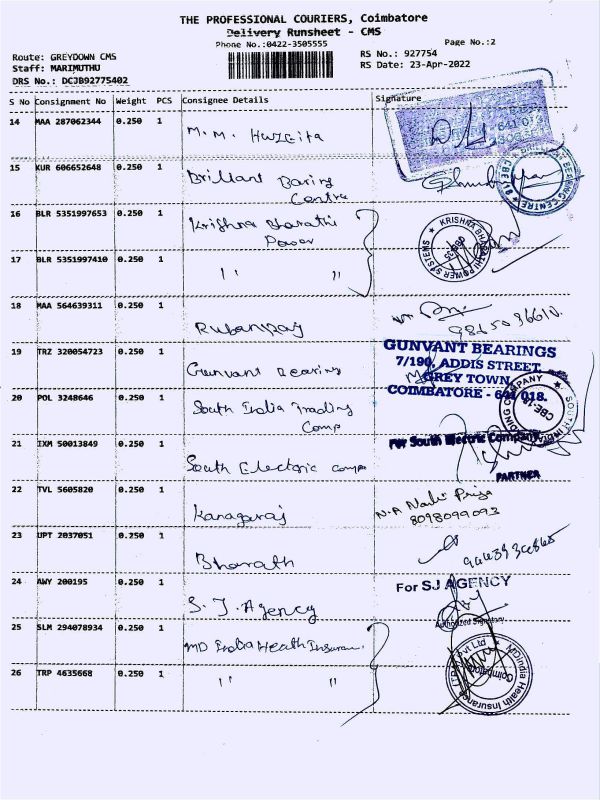 THE PROFESSIONAL COURIERS, Coimbatore
Delivery Runsheet - CMS
Phone No.:0422-3505555
Page No.:2
Route: GREYDOWN CMS
Staff: MARIMUTHU
DRS No.: DCJB92775402
RS No.: 927754
RS Date: 23-Apr-2022
S No Consignment No Weight PCS Consignee Details Signature
14 MAA 287062344 0.250 1 M. M. Huzeifa
641 013
15 KUR 606652648 0.250 1 Brillant Baring
Centre
BRILLIANT BEARING CENTRE
CBE 18
16 BLR 5351997653 0.250 1 Krishna Bharathi
Power
KRISHNA BHARATHI POWER SYSTEMS
17 BLR 5351997410 0.250 1 " "
18 MAA 564639311 0.250 1 Rubanraj
19 TRZ 320054723 0.250 1 Gunvant Bearing
GUNVANT BEARINGS
7/190, ADDIS STREET,
GREY TOWN,
COIMBATORE - 641 018.
20 POL 3248646 0.250 1 South India Trading
Comp
SOUTH INDIA TRADING COMPANY
CBE-18
21 IXM 50013849 0.250 1 South Electric comp
For South Electric Company
PARTNER
22 TVL 5605820 0.250 1 Kanagaraj
8098099093
23 UPT 2037051 0.250 1 Bharath
24 AWY 200195 0.250 1 S. J. Agency
For SJ AGENCY
Authorized Signatory
25 SLM 294078934 0.250 1 MD India Health Insuran.
26 TRP 4635668 0.250 1 " "
MDIndia Health Insurance (TPA) Pvt Ltd
Coimbatore